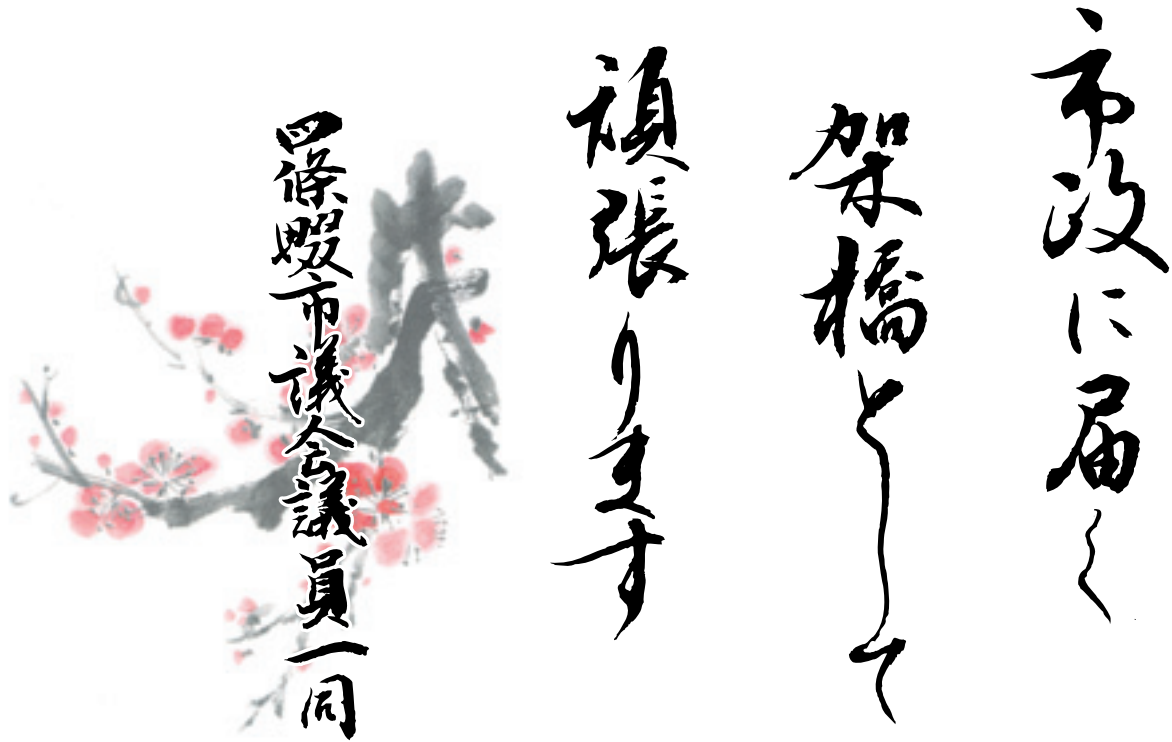 市政に届く
架橋として
頑張ります
四條畷市議会議員一同